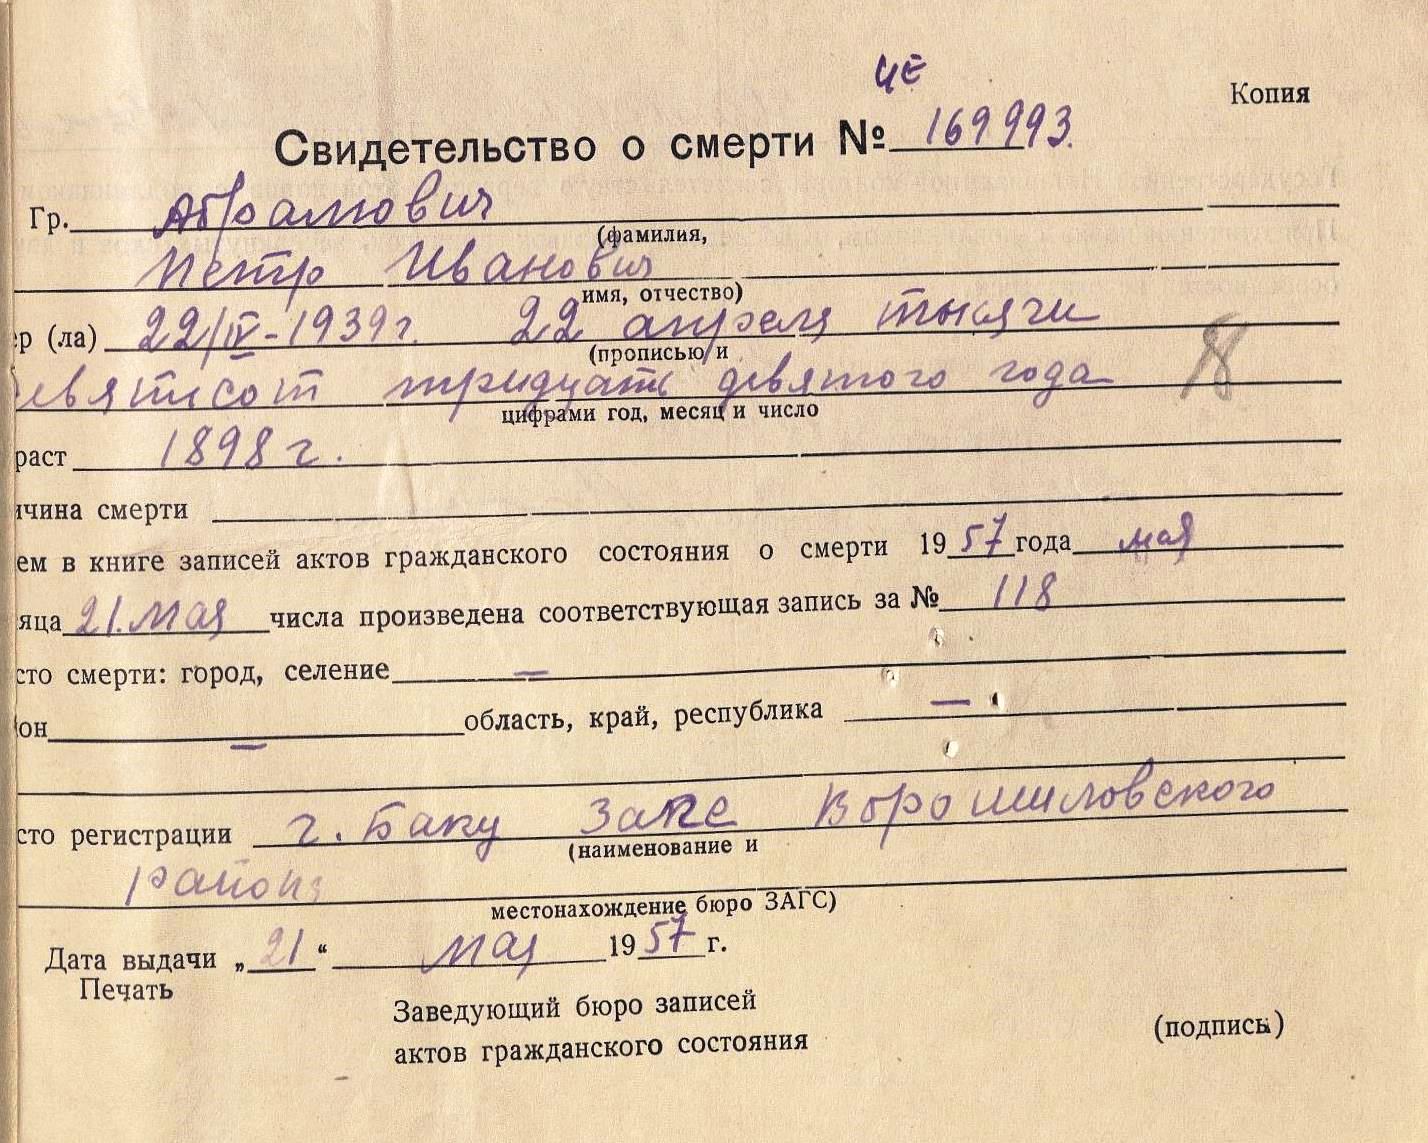 ЦЕ
Копия
Свидетельство о смерти № 169993.
Гр. Абрамович
(фамилия,
Петр Иванович
имя, отчество)
ер (ла) 22/IV-1939г. 22 апреля тысячи
(прописью и
девятисот тридцать девятого года
цифрами год, месяц и число
18
раст 1898 г.
ичина смерти
ем в книге записей актов гражданского состояния о смерти 1957 года мая
яца 21. мая числа произведена соответствующая запись за № 118
сто смерти: город, селение —
он — область, край, республика —
сто регистрации г. Баку Загс Ворошиловского
(наименование и
района
местонахождение бюро ЗАГС)
Дата выдачи „21“ мая 1957 г.
Печать
Заведующий бюро записей
актов гражданского состояния
(подпись)